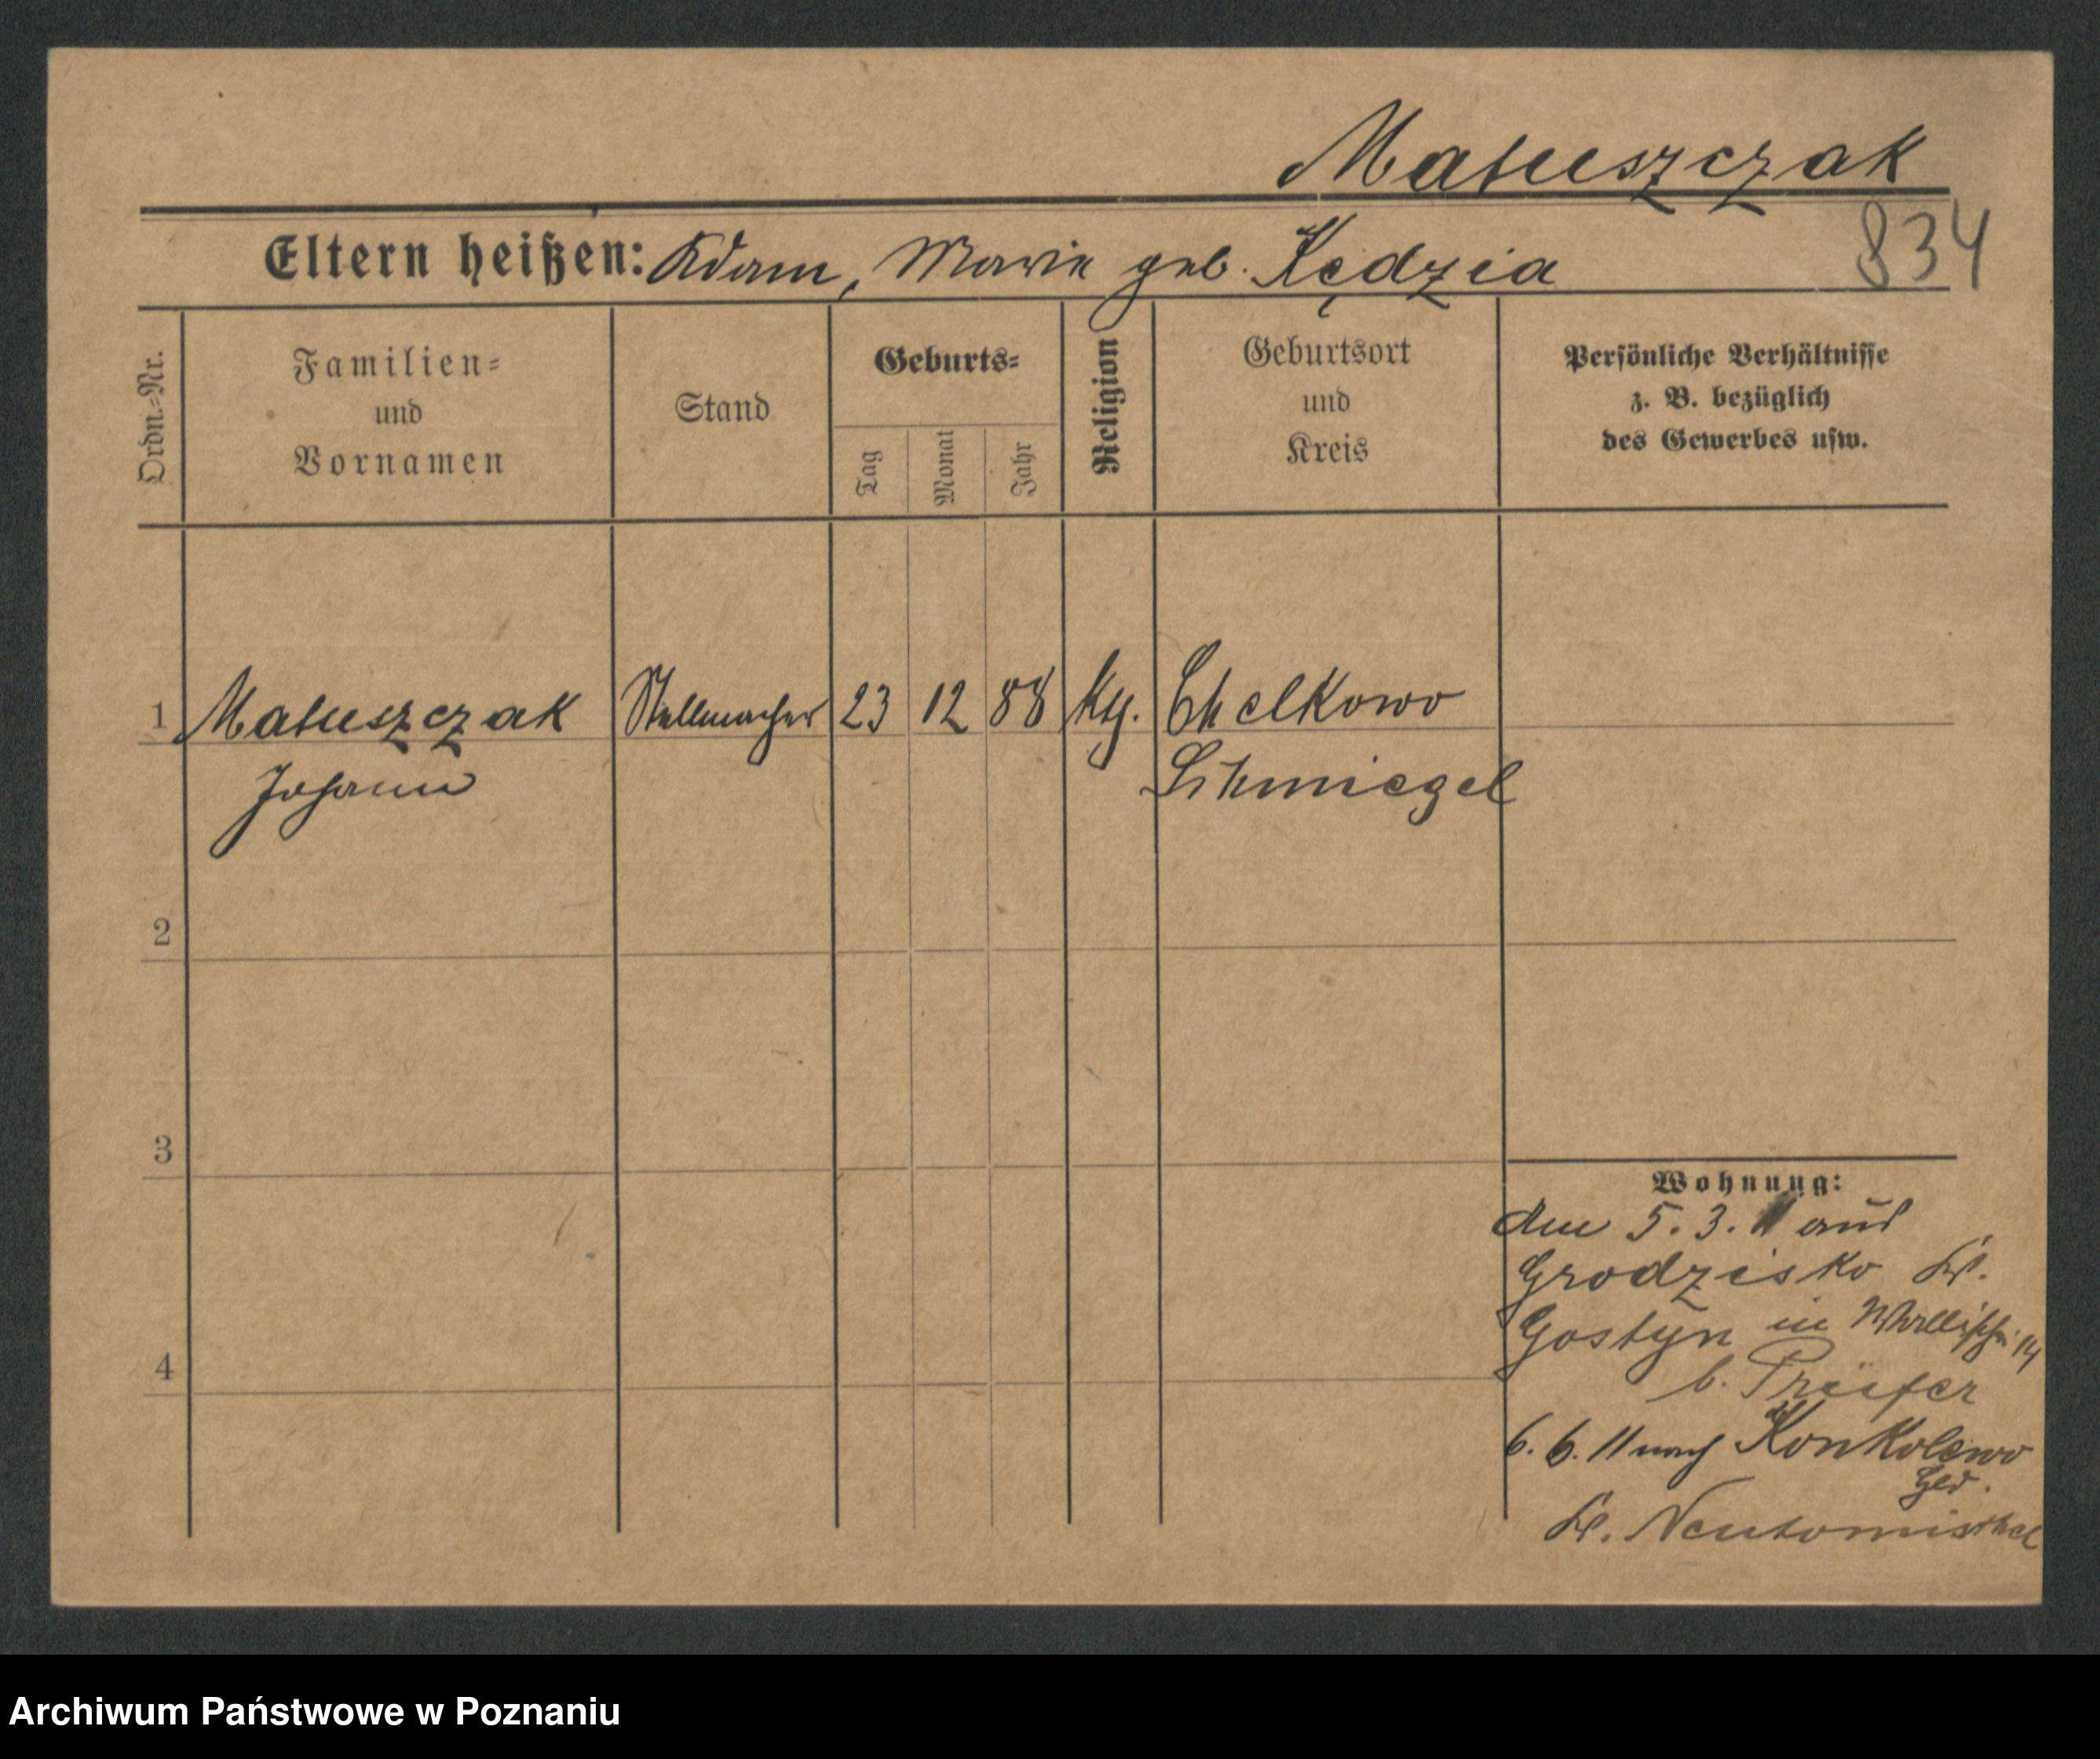 Matuszczak
834
Eltern heißen: Adam, Marie geb. Kędzia
Ordn.=Nr.
Familien=
und
Vornamen
Stand
Geburts=
Tag
Monat
Jahr
Religion
Geburtsort
und
Kreis
Persönliche Verhältnisse
z. B. bezüglich
des Gewerbes usw.
1 Matuszczak Stellmacher 23 12 88 kth. Chelkowo
Johann Schmiegel
2
3
4
Wohnung:
Am 5. 3. 11 aus
Grodzisko Kr.
Gostyn in Wallischei 14
b. Preifer
6. 6. 11 nach Konkolewo
Hld.
Kr. Neutomischel
Archiwum Państwowe w Poznaniu